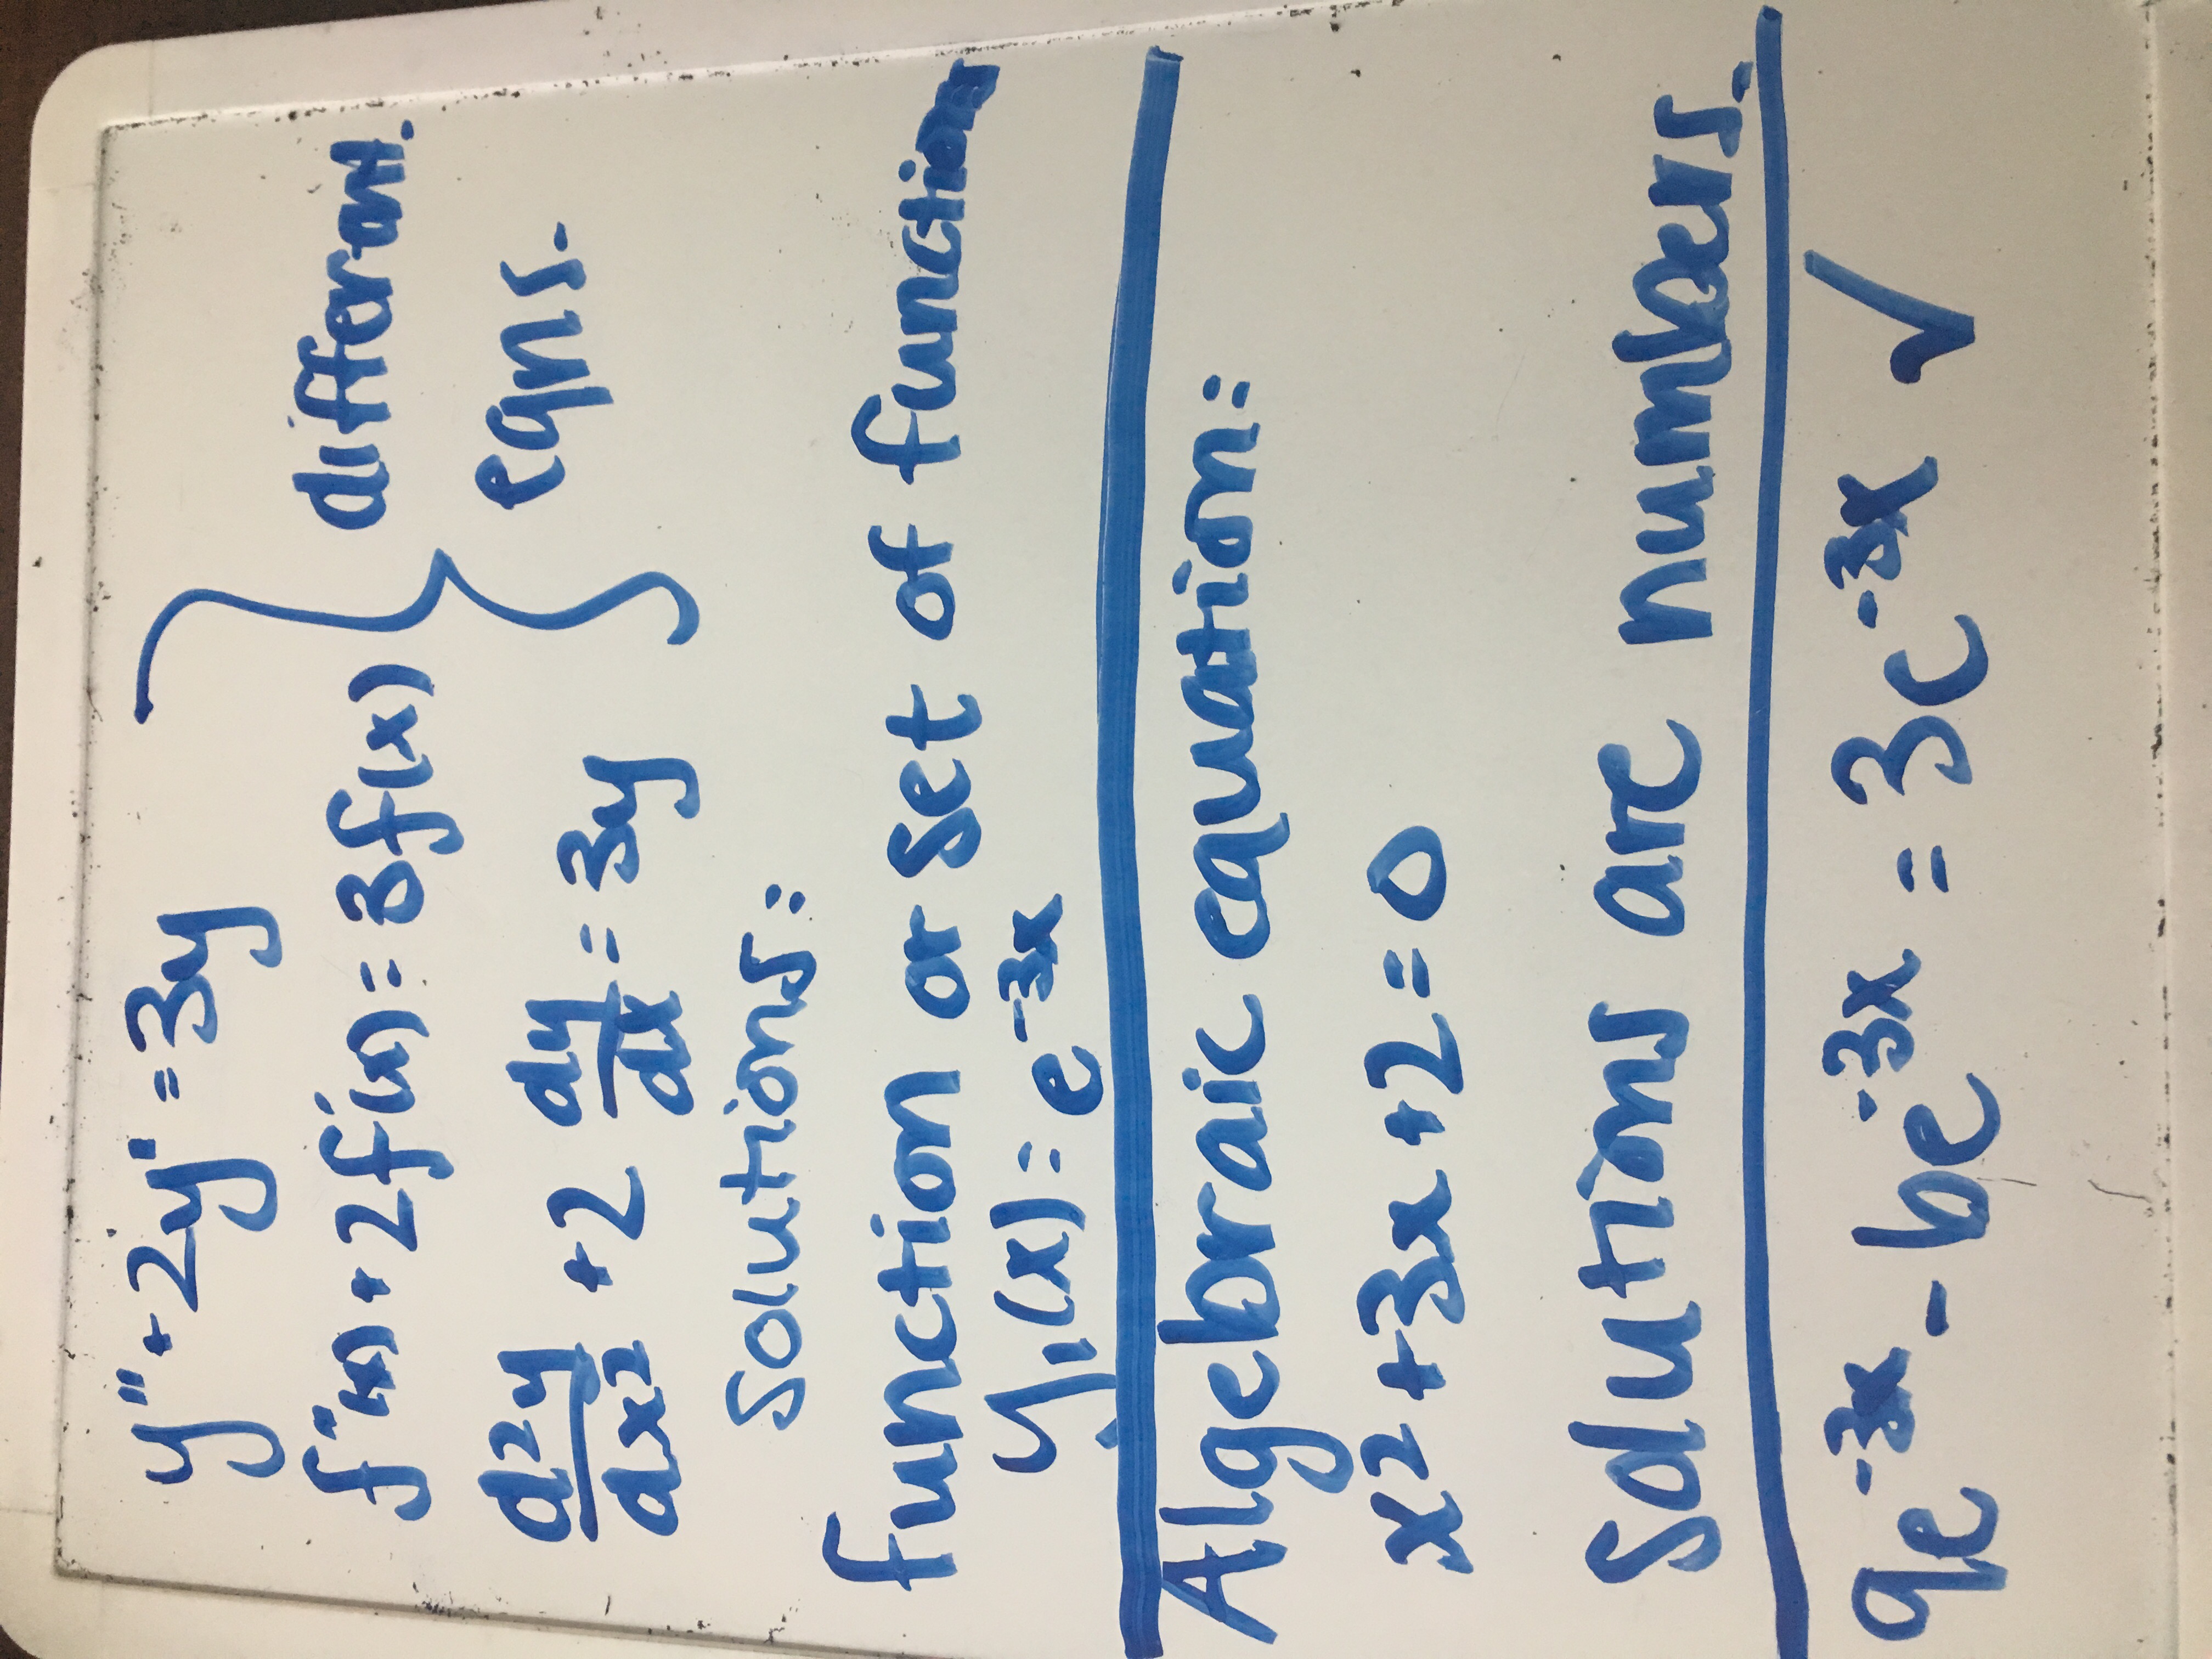 y" + 2y' = 3y
f"(x) + 2f'(x) = 3f(x)
d²y/dx² + 2 dy/dx = 3y
different.
eqns.
solutions:
function or set of functions
y₁(x) = e⁻³ˣ
Algebraic equation:
x² + 3x + 2 = 0
solutions are numbers.
9e⁻³ˣ - 6e⁻³ˣ = 3e⁻³ˣ ✓